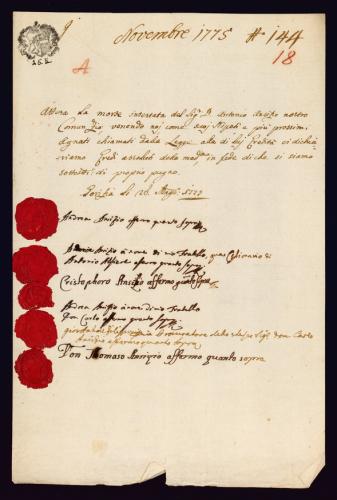 9 Novembre 1775 N.º 144
A 18
Attesa La morte intestata del Sig.r D. Antonio Ansizio nostro
Comun Zio venendo noi come suoi Nipoti e più prossimi
Agnati chiamati dalla Legge alla di lui Eredità ci dichia-
riamo Eredi assoluti della med.ma in fede di che ci siamo
sottoscritti di proprio pugno.
Andrea Ansizio affermo quanto sopra
Andrea Ansizio à nome di mio Fratello
affermo quanto sopra
Cristophoro Ansizio affermo quãto sopra
Andrea Ansizio à nome di mio Fratello
Don Carlo affermo quanto sopra
Procuratore dello stesso Sig. Don Carlo
Ansizio affermo quanto sopra
Don Thomaso Ansizio affermo quanto sopra